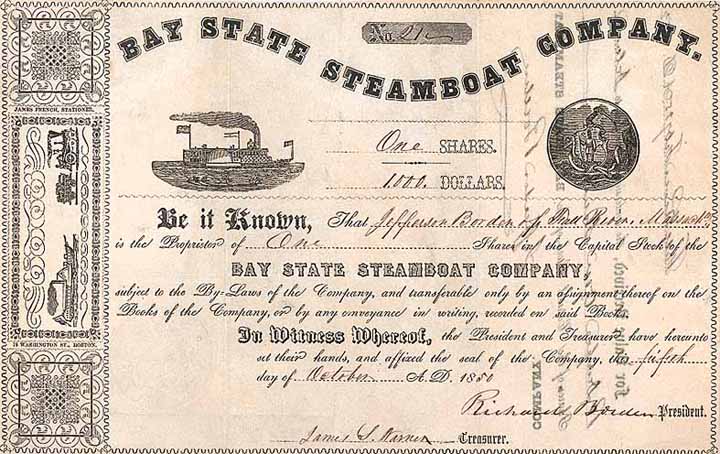 No. 212
BAY STATE
STEAMBOAT COMPANY.
JAMES FRENCH, STATIONER,
78 WASHINGTON ST., BOSTON.
One SHARES.
1.000. DOLLARS.
Be it Known, That Jefferson Borden of Fall River, Massts
is the Proprietor of One Share in the Capital Stock of the
BAY STATE STEAMBOAT COMPANY,
subject to the By-Laws of the Company, and transferable only by an assignment thereof on the
Books of the Company, or by any conveyance in writing, recorded on said Books.
In Witness Whereof, the President and Treasurer have hereunto
set their hands, and affixed the seal of the Company, this fifth
day of October A.D. 1850
Richard Borden President.
James S. Warner Treasurer.